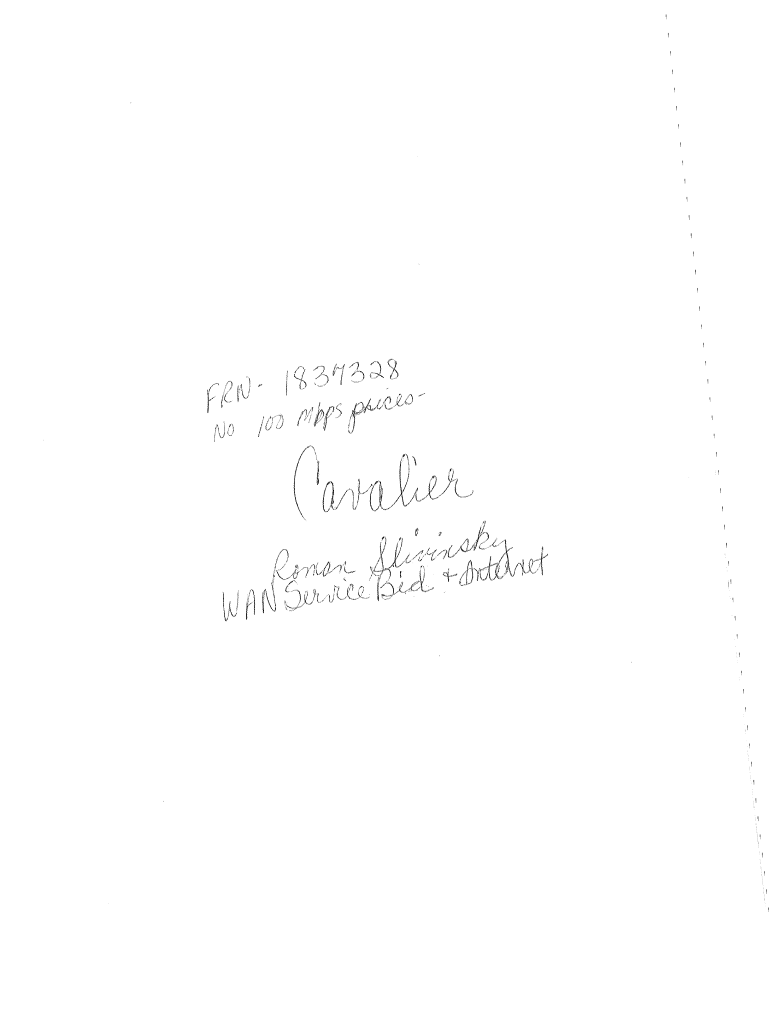 FRN- 1837328
No 100 Mbps prices-
Cavalier
Roman Slivinsky
WAN Service Bid + Internet